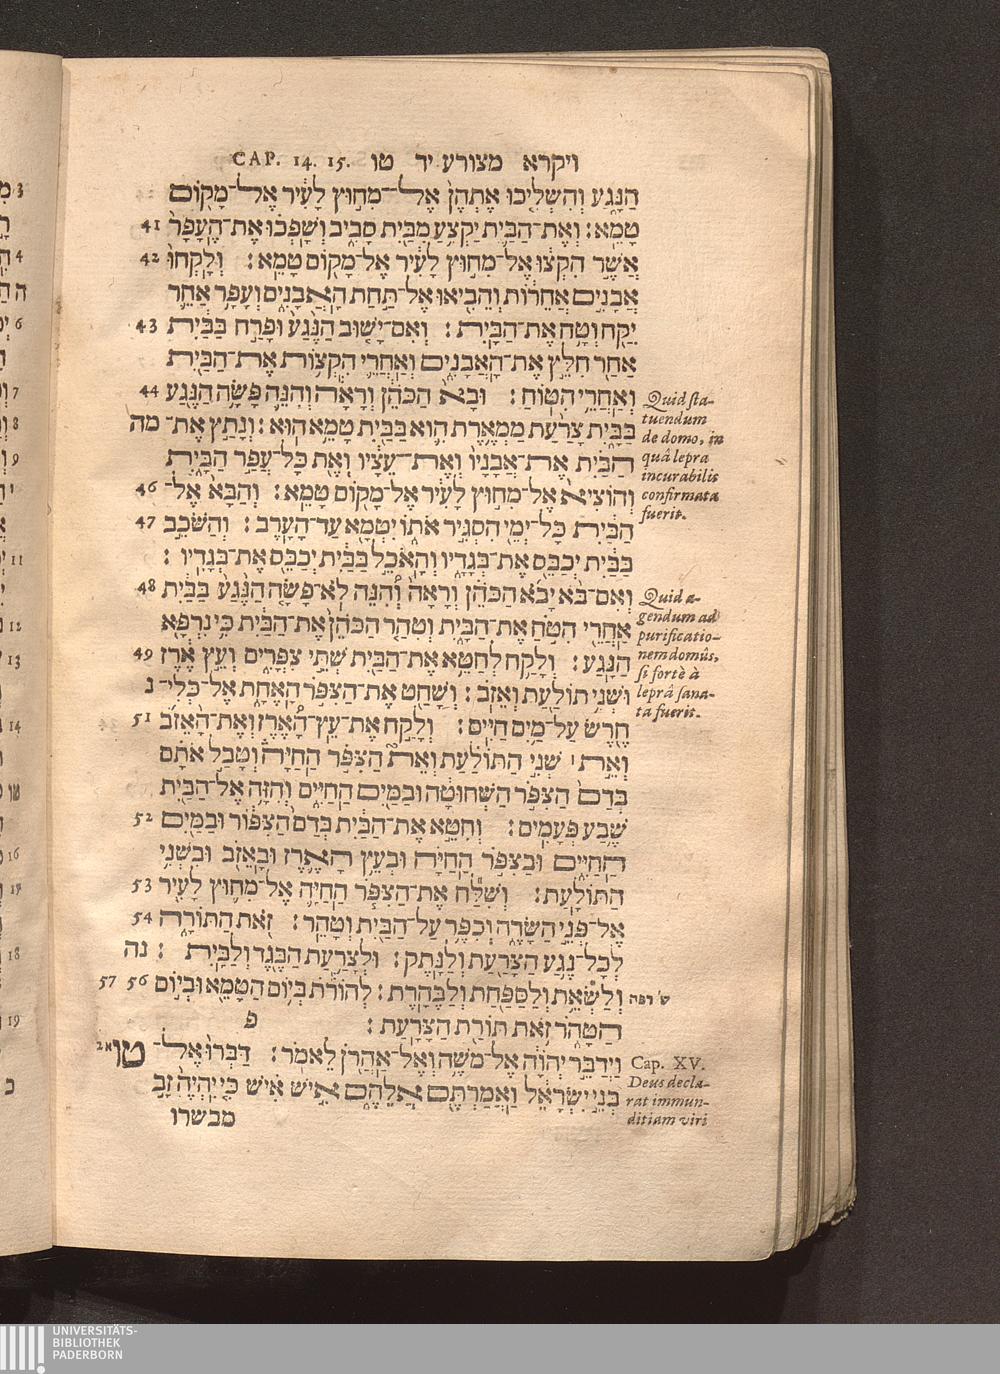 ויקרא מצורע יד טו CAP. 14. 15.
הַנָּגַע וְהִשְׁלִיכוּ אֶתְהֶן אֶל־מִחוּץ לָעִיר אֶל־מָקוֹם
טָמֵא: וְאֶת־הַבַּיִת יַקְצִעַ מִבַּיִת סָבִיב וְשָׁפְכוּ אֶת־הֶעָפָר 41
אֲשֶׁר הִקְצוּ אֶל־מִחוּץ לָעִיר אֶל־מָקוֹם טָמֵא: וְלָקְחוּ 42
אֲבָנִים אֲחֵרוֹת וְהֵבִיאוּ אֶל־תַּחַת הָאֲבָנִים וְעָפָר אַחֵר
יִקַּח וְטָח אֶת־הַבָּיִת: וְאִם־יָשׁוּב הַנֶּגַע וּפָרַח בַּבַּיִת 43
אַחַר חִלֵּץ אֶת־הָאֲבָנִים וְאַחֲרֵי הִקְצוֹת אֶת־הַבַּיִת
וְאַחֲרֵי הִטּוֹחַ: וּבָא הַכֹּהֵן וְרָאָה וְהִנֵּה פָּשָׂה הַנֶּגַע 44
בַּבָּיִת צָרַעַת מַמְאֶרֶת הִוא בַּבַּיִת טָמֵא הוּא: וְנָתַץ אֶת־ מה
הַבַּיִת אֶת־אֲבָנָיו וְאֶת־עֵצָיו וְאֵת כָּל־עֲפַר הַבָּיִת
וְהוֹצִיא אֶל־מִחוּץ לָעִיר אֶל־מָקוֹם טָמֵא: וְהַבָּא אֶל־ 46
הַבַּיִת כָּל־יְמֵי הִסְגִּיר אֹתוֹ יִטְמָא עַד־הָעָרֶב: וְהַשֹּׁכֵב 47
בַּבַּיִת יְכַבֵּס אֶת־בְּגָדָיו וְהָאֹכֵל בַּבַּיִת יְכַבֵּס אֶת־בְּגָדָיו:
וְאִם־בֹּא יָבֹא הַכֹּהֵן וְרָאָה וְהִנֵּה לֹא־פָשָׂה הַנֶּגַע בַּבַּיִת 48
אַחֲרֵי הִטֹּחַ אֶת־הַבָּיִת וְטִהַר הַכֹּהֵן אֶת־הַבַּיִת כִּי נִרְפָּא
הַנָּגַע: וְלָקַח לְחַטֵּא אֶת־הַבַּיִת שְׁתֵּי צִפֳּרִים וְעֵץ אֶרֶז 49
וּשְׁנִי תוֹלַעַת וְאֵזֹב: וְשָׁחַט אֶת־הַצִּפֹּר הָאֶחָת אֶל־כְּלִי־ נ
חֶרֶשׂ עַל־מַיִם חַיִּים: וְלָקַח אֶת־עֵץ־הָאֶרֶז וְאֶת־הָאֵזֹב 51
וְאֵת׀ שְׁנִי הַתּוֹלַעַת וְאֵת הַצִּפֹּר הַחַיָּה וְטָבַל אֹתָם
בְּדַם הַצִּפֹּר הַשְּׁחוּטָה וּבַמַּיִם הַחַיִּים וְהִזָּה אֶל־הַבַּיִת
שֶׁבַע פְּעָמִים: וְחִטֵּא אֶת־הַבַּיִת בְּדַם הַצִּפּוֹר וּבַמַּיִם 52
הַחַיִּים וּבַצִּפֹּר הַחַיָּה וּבְעֵץ הָאֶרֶז וּבָאֵזֹב וּבִשְׁנִי
הַתּוֹלָעַת: וְשִׁלַּח אֶת־הַצִּפֹּר הַחַיָּה אֶל־מִחוּץ לָעִיר 53
אֶל־פְּנֵי הַשָּׂדֶה וְכִפֶּר עַל־הַבַּיִת וְטָהֵר: זֹאת הַתּוֹרָה 54
לְכָל־נֶגַע הַצָּרַעַת וְלַנָּתֶק: וּלְצָרַעַת הַבֶּגֶד וְלַבָּיִת: נה
וְלַשְׂאֵת וְלַסַּפַּחַת וְלַבֶּהָרֶת: לְהוֹרֹת בְּיוֹם הַטָּמֵא וּבְיוֹם 56 57
הַטָּהֹר זֹאת תּוֹרַת הַצָּרָעַת:
פ
וַיְדַבֵּר יְהוָֹה אֶל־מֹשֶׁה וְאֶל־אַהֲרֹן לֵאמֹר: דַּבְּרוּ אֶל־ טו
בְּנֵי יִשְׂרָאֵל וַאֲמַרְתֶּם אֲלֵהֶם אִישׁ אִישׁ כִּי יִהְיֶה זָב
מבשרו
Quid sta-
tuendum
de domo, in
quâ lepra
incurabilis
confirmata
fuerit.
Quid a-
gendum ad
purificatio-
nem domûs,
si fortè à
leprâ sana-
ta fuerit.
Cap. XV.
Deus decla-
rat immun-
ditiam viri
3
4
ה
6
7
8
9
י
11
12
13
14
טו
16
17
18
19
כ
UNIVERSITÄTS-
BIBLIOTHEK
PADERBORN